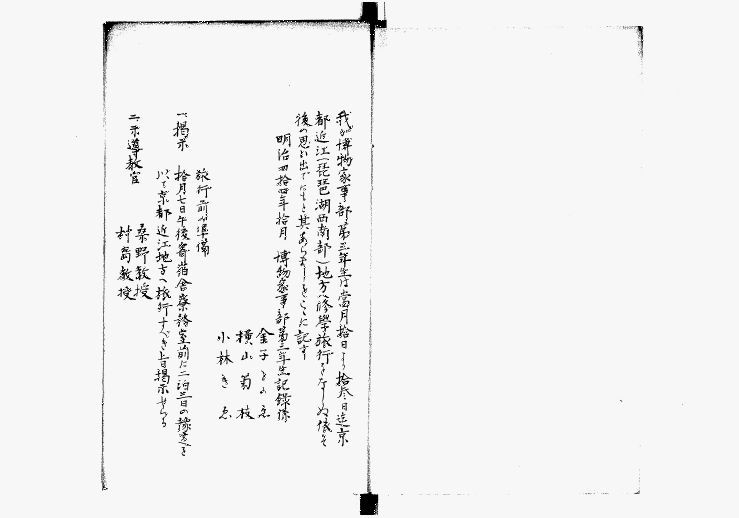 我が博物家事部第三年生は當月拾日より拾参日迄京
都近江(琵琶湖西南部)地方へ修學旅行をなしぬ依て
後の思ひ出でにもと其あらましをここに記す
明治四拾四年拾月 博物家事部第三年生記録係
金子とみゑ
横山菊枝
小林きゑ
旅行前の準備
一、掲示 拾月七日午後寄宿舎寮務室前に二泊三日の豫定を
以て京都近江地方へ旅行すべき旨掲示せらる
二、示導教官
桑野教授
村岡教授